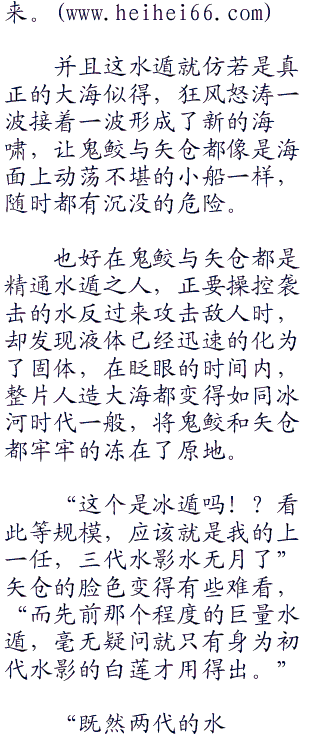 来。(www.heihei66.com)
并且这水遁就仿若是真
正的大海似得，狂风怒涛一
波接着一波形成了新的海
啸，让鬼鲛与矢仓都像是海
面上动荡不堪的小船一样，
随时都有沉没的危险。
也好在鬼鲛与矢仓都是
精通水遁之人，正要操控袭
击的水反过来攻击敌人时，
却发现液体已经迅速的化为
了固体，在眨眼的时间内，
整片人造大海都变得如同冰
河时代一般，将鬼鲛和矢仓
都牢牢的冻在了原地。
“这个是冰遁吗！？看
此等规模，应该就是我的上
一任，三代水影水无月了”
矢仓的脸色变得有些难看，
“而先前那个程度的巨量水
遁，毫无疑问就只有身为初
代水影的白莲才用得出。”
“既然两代的水